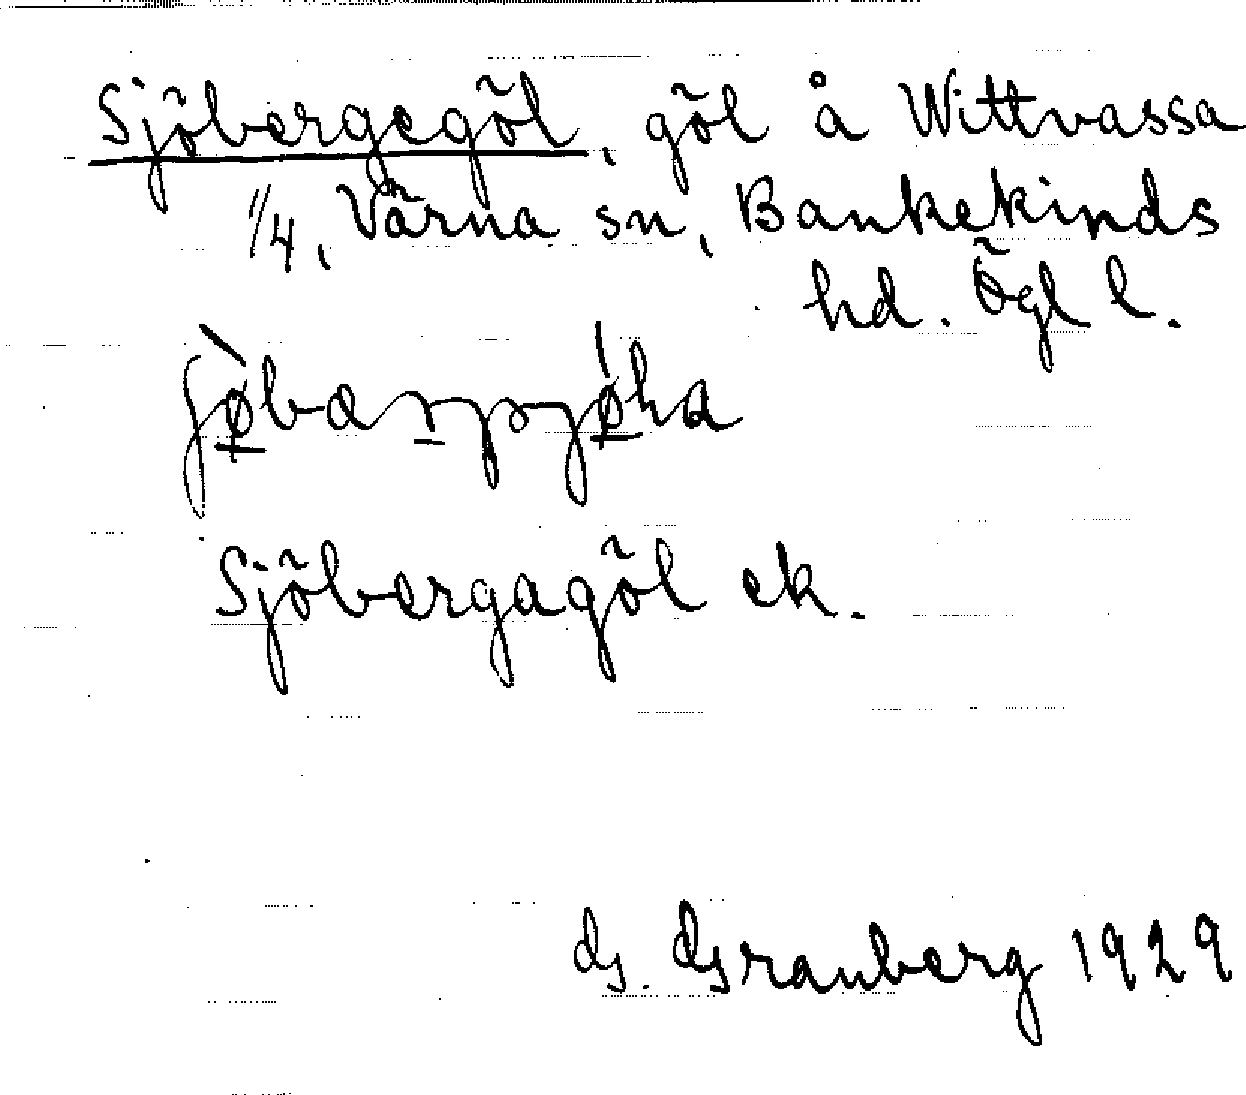 Sjöbergegöl, göl å Wittvassa
1/4, Värna sn, Bankekinds
hd. Ögl l.
Sjöbergagöl ek.
G. Granberg 1929